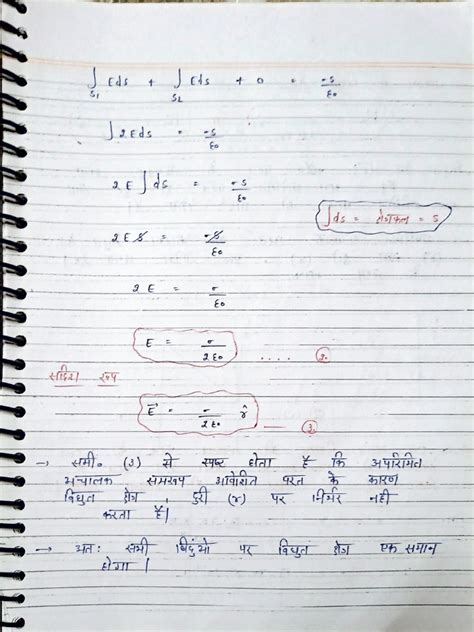 ∫S₁ Eds + ∫S₂ Eds + 0 = σs/ε₀
∫2Eds = σs/ε₀
2E∫ds = σs/ε₀
∫ds = क्षेत्रफल = s
2Es = σs/ε₀
2E = σ/ε₀
E = σ/2ε₀ .... ②
सदिश रूप
E⃗ = σ/2ε₀ r̂ ... ③
→ समी० (3) से स्पष्ट होता है कि अपरिमित
अचालक समरूप आवेशित परत के कारण
विधुत क्षेत्र, दुरी (r) पर निर्भर नही
करता है।
→ अतः सभी बिंदुओ पर विधुत क्षेत्र एक समान
होगा।